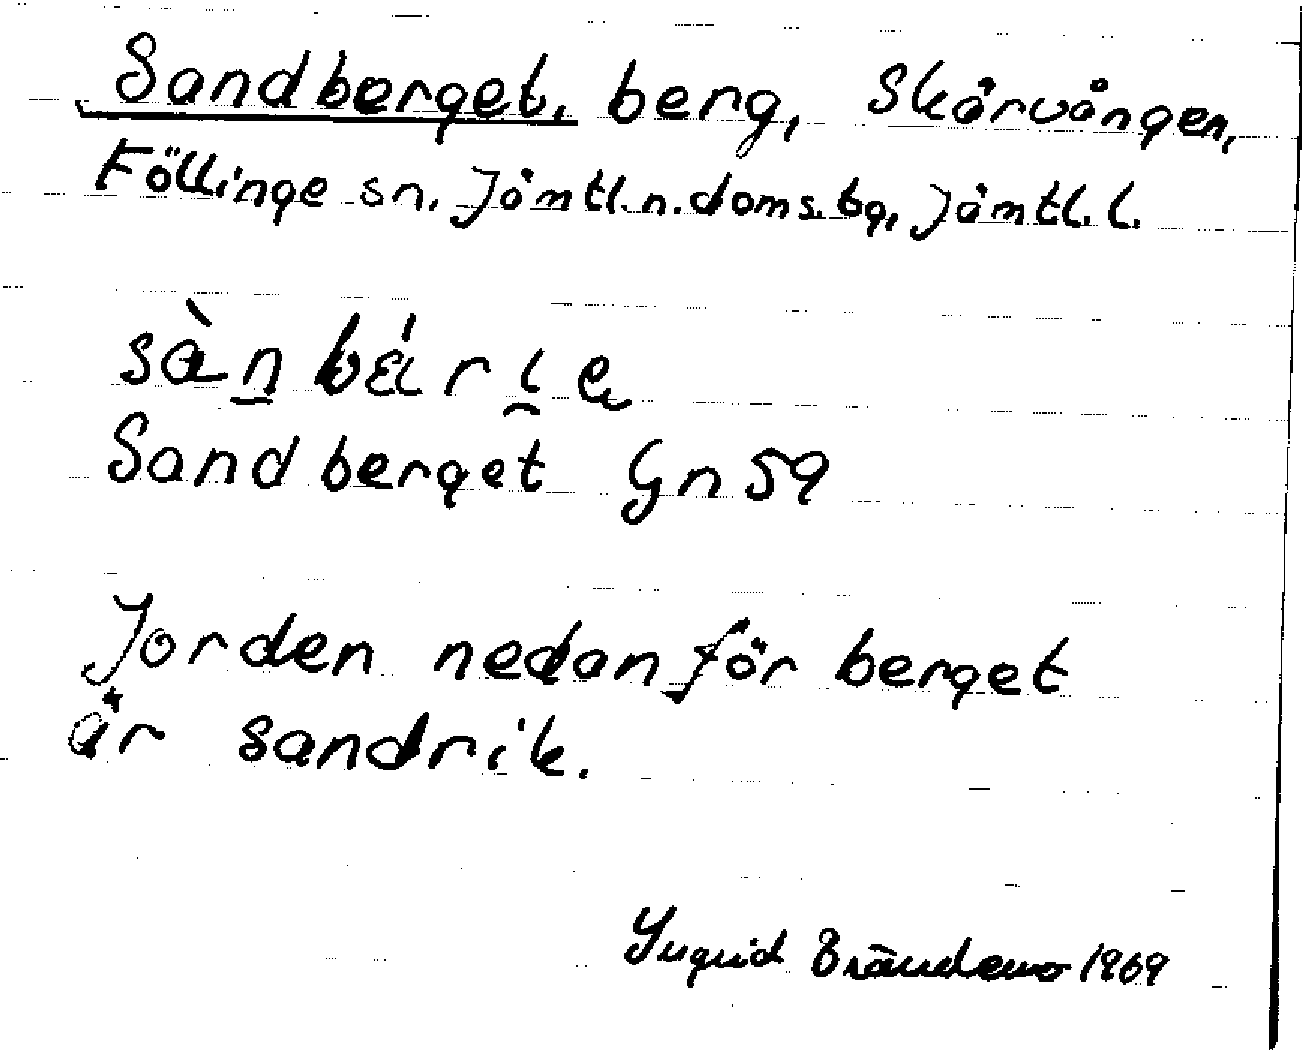 Sandberget, berg, Skärvången,
Föllinge sn. Jämtl.n.doms.bg, Jämtl.l.
Sandberget Gn 59
Jorden nedanför berget
är sandrik.
Ingrid Brändemo 1969